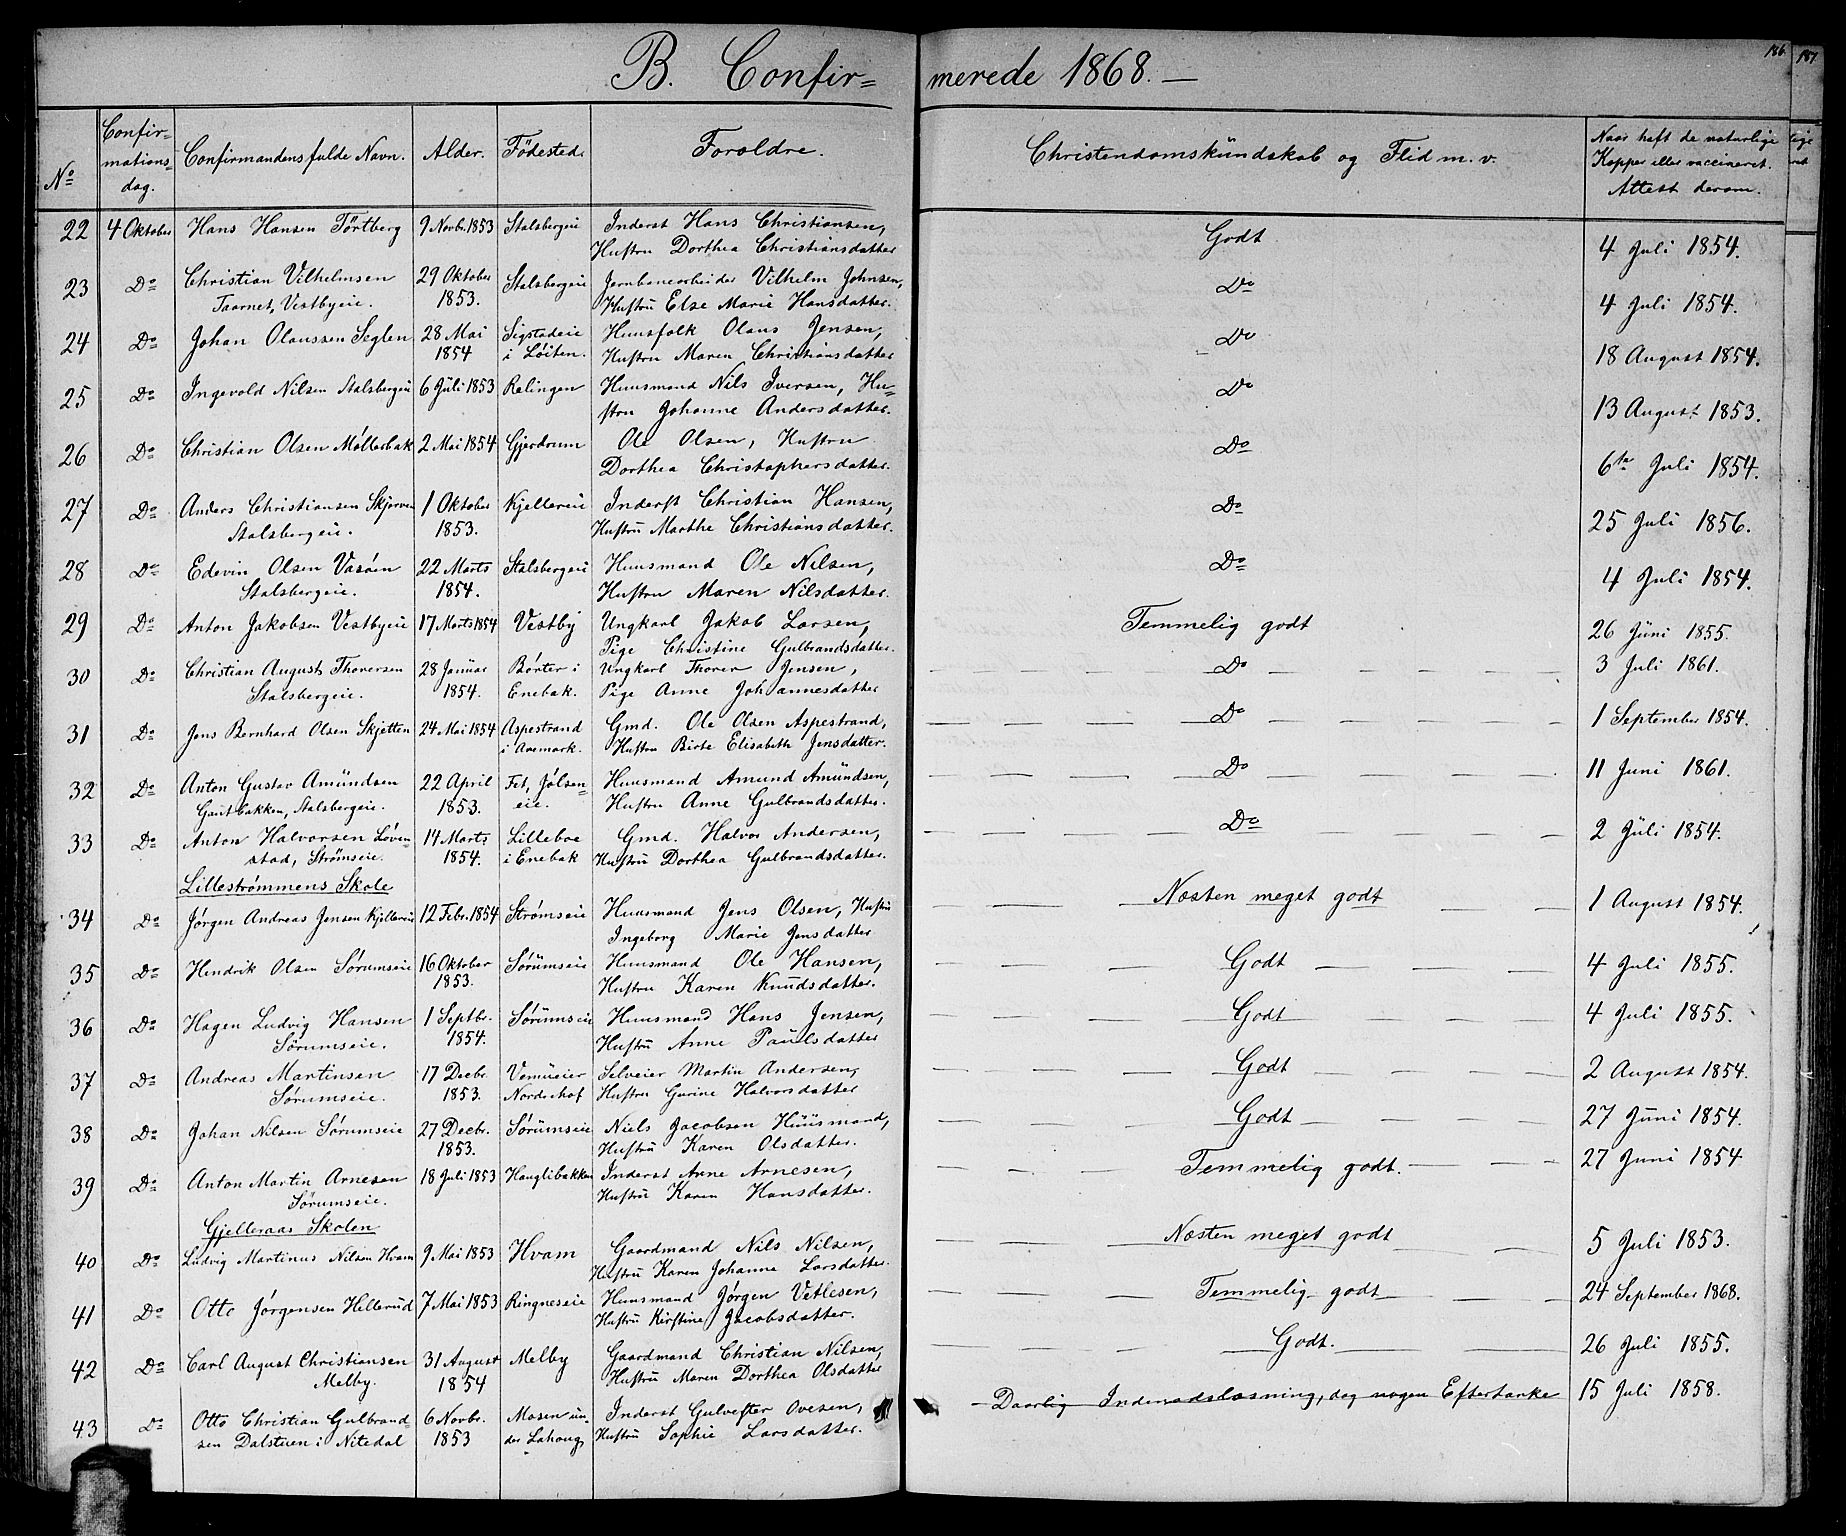 B. Confir=merede 1868. —
186.
187.
No
Confir=mations dag.
Confirmandens fulde Navn.
Alder.
Fødested.
Forældre.
Christendomskundskab og Flid m. v.
Naar haft de naturlige Kopper eller vaccineret. Attest derom.
22 4 Oktober Hans Hansen Törtberg 9 Novbr. 1853 Stalsbergeie Inderst Hans Christiansen, Godt 4 Juli 1854.
Hustru Dorthea Christiansdatter
23 Do Christian Vilhelmsen 29 Oktober Stalsbergeie Jernbanearbeider Vilhelm Johnsen, Do 4 Juli 1854.
Taarnet, Vestbyeie. 1853. Hustru Else Marie Hansdatter.
24 Do Johan Olaussen Seglen 28 Mai Sigstadeie Huusfolk Olaus Jensen, Do 18 August 1854.
1854 i Løiten. Hustru Maren Christiansdatter
25 Do Ingevold Nilsen Stalsbergeie 6 Juli 1853 Relingen Huusmand Nils Iversen, Hu= Do 13 August 1853.
stru Johanne Andersdatter.
26 Do Christian Olsen Møllerbak 2 Mai 1854 Gjerdrum Ole Olsen, Hustru Do 6te Juli 1854.
Dorthea Christophersdatter.
27 Do Anders Christiansen Skjerven 1 Oktober Kjellereie Inderst Christian Hansen, Do 25 Juli 1856.
Stalsbergeie. 1853. Hustru Marthe Christiansdatter.
28 Do Edevin Olsen Vasöen 22 Marts Stalsbergeie Huusmand Ole Nilsen, Do 4 Juli 1854.
Stalsbergeie. 1854. Hustru Maren Nilsdatter.
29 Do Anton Jakobsen Vestbyeie 17 Marts 1854 Vestby Ungkarl Jakob Larsen, Temmelig godt 26 Juni 1855.
Pige Christine Gulbrandsdatter.
30 Do Christian August Thoversen 28 Januar Börter i Ungkarl Thorer Jensen, Do 3 Juli 1861.
Stalsbergeie. 1854. Enebak. Pige Anne Johannesdatter
31 Do Jens Bernhard Olsen Skjetten 24 Mai 1854 Aspestrand Gmd. Ole Olsen Aspestrand, Do 1 September 1854.
i Aremark. Hustru Birte Elisabeth Jensdatter.
32 Do Anton Gustav Amundsen 22 April Fet, Jølsen= Huusmand Amund Amundsen, Do 11 Juni 1861.
Gautbakken, Stalsbergeie. 1853. eie. Hustru Anne Gulbrandsdatter.
33 Do Anton Halvorsen Løven 14 Marts Lilleboe Gmd. Halvor Andersen, Do 2 Juli 1854.
stad, Strømseie. 1854. i Enebak Hustru Dorthea Gulbrandsdatter.
Lillestrømmens Skole
34 Do Jørgen Andreas Jensen Kjellereie 12 Febr. 1854 Strømseie Huusmand Jens Olsen, Hustru Næsten meget godt 1 August 1854.
Ingeborg Marie Jensdatter
35 Do Hendrik Olsen Sørumseie 16 Oktober Sørumseie Huusmand Ole Hansen, Godt 4 Juli 1855.
1853. Hustru Karen Knudsdatter.
36 Do Hagen Ludvig Hansen 1 Septbr. Sørumseie Huusmand Hans Jensen, Godt 4 Juli 1855.
Sørumseie. 1854. Hustru Anne Paulsdatter
37 Do Andreas Martinsen 17 Decbr. Vemüeier Selveier Martin Andersen, Godt 2 August 1854.
Sørumseie. 1853. Nordrehof Hustru Gurine Halvorsdatter
38 Do Johan Nilsen Sørumseie 27 Decbr. Sørumseie Niels Jacobsen Huusmand, Godt 27 Juni 1854.
1853. Hustru Karen Olsdatter.
39 Do Anton Martin Arnesen 18 Juli 1853 Hauglibakken Inderst Arne Arnesen, Temmelig godt. 27 Juni 1854
Sørumseie. Hustru Karen Hansdatter.
Gjelleraas Skolen
40 Do Ludvig Martinus Nilsen Hvam 9 Mai 1853 Hvam Gaardmand Nils Nilsen, Næsten meget godt 5 Juli 1853.
Hustru Karen Johanne Larsdatter.
41 Do Otto Jørgensen Hillerud 7 Mai 1853 Ringneseie Huusmand Jørgen Vetlesen, Temmelig godt 24 September 1868.
Hustru Kirstine Jacobsdatter.
42 Do Carl August Christiansen 31 August Melby Gaardmand Christian Nilsen, Godt. 26 Juli 1855.
Melby. 1854 Hustru Maren Dorthea Olsdatter
43 Do Otto Christian Gulbrand= 6 Novbr. Mosen un= Inderst Gulvester Ovesen, Daarlig Indenadslæsning, dog nogen Eftertanke 15 Juli 1858.
sen Dalstuen i Nitedal 1853 der Lahoug, Hustru Sophie Larsdatter.